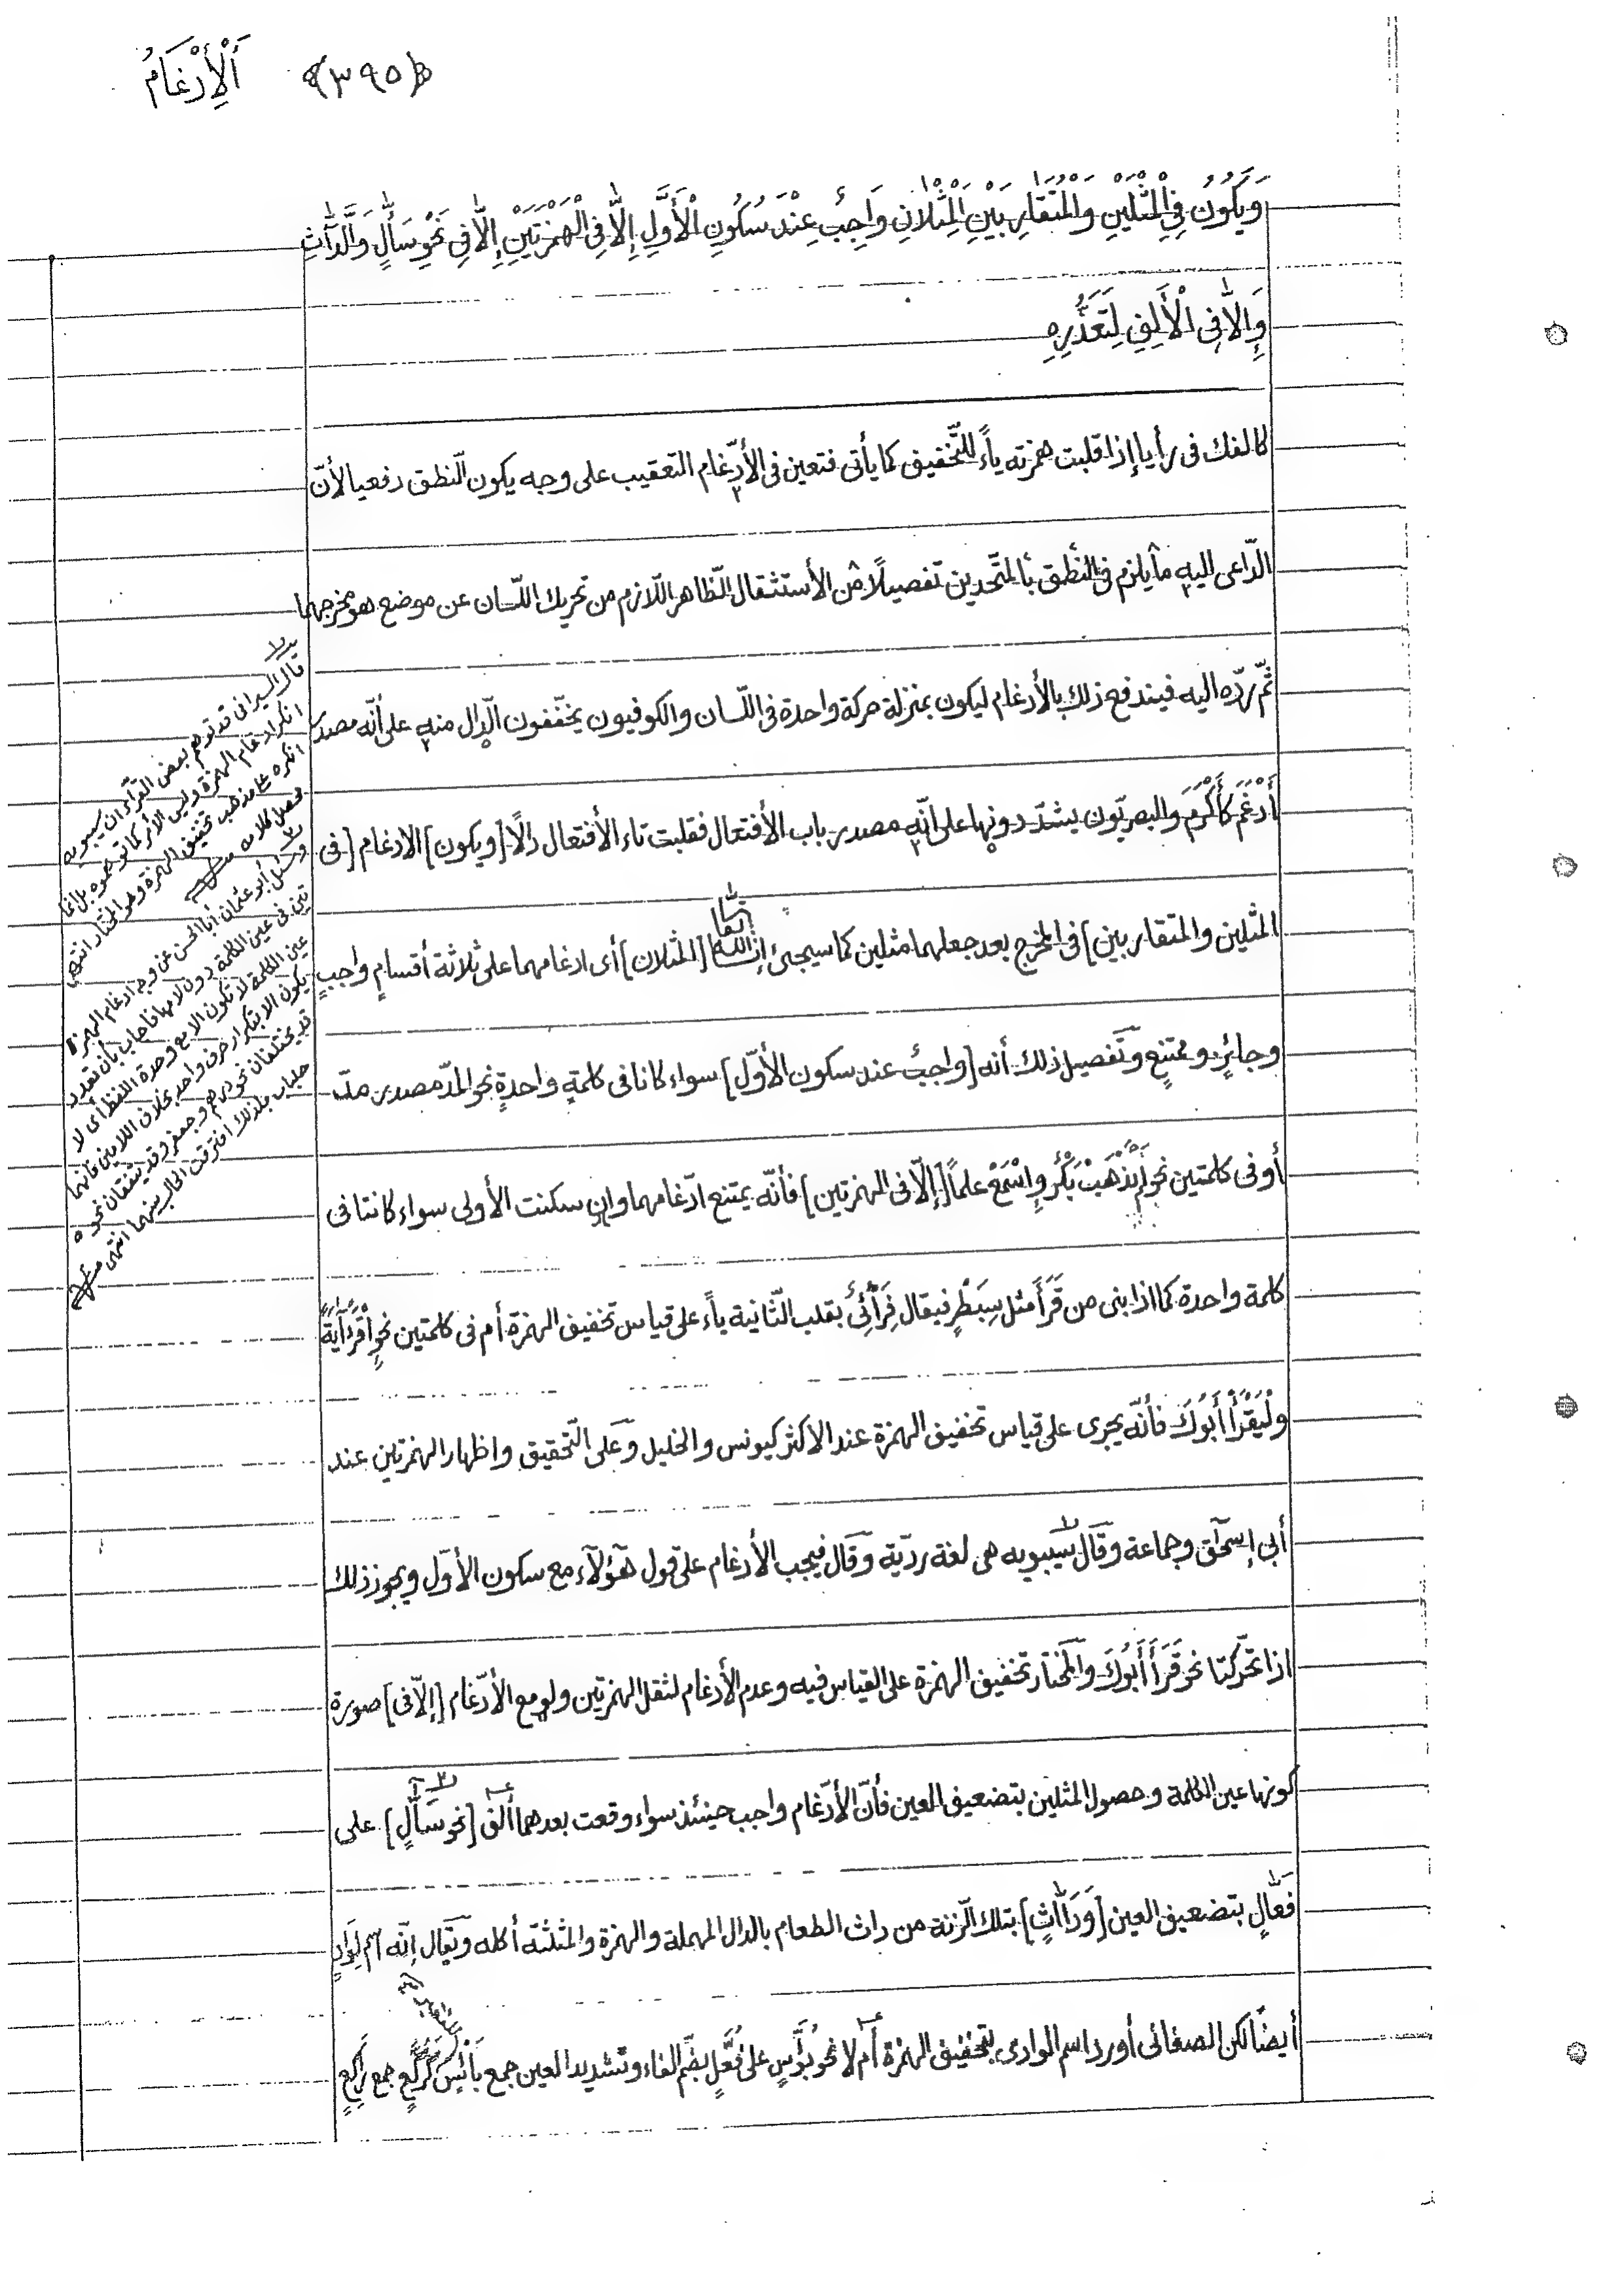 ﴿٣٩٥﴾ اَلْأِدْغَامُ
وَيَكُونُ فِي الْمِثْلَيْنِ وَالْمُتَقَارِبَيْنِ اَلْمِثْلَانِ وَاجِبٌ عِنْدَ سُكُونِ الْأَوَّلِ إِلَّا فِي الْهَمْزَتَيْنِ إِلَّا فِي نَحْوِ سَأَّالٍ وَالدَّأَّاثِ
وَإِلَّا فِي الْأَلِفِ لِتَعَذُّرِهِ
كالفك فى رأيا إذا قلبت همزته ياءً للتّخفيف كما يأتى فتعين فى الأدّغام التعقيب على وجه يكون النّطق دفعيا لأنّ
الدّاعى اليه ما يلزم فى النّطق بالمتّحدين تفصيلًا من الأستثقال الظّاهر اللّازم من تحريك اللّسان عن موضع هو مخرجهما
ثمّ ردّه اليه فيندفع ذلك بالأدغام ليكون بمنزلة حركة واحدة فى اللّسان والكوفيون يخفّفون الدّال منه على أنّه مصدر
أَدْغَمَ كَأَكْرَمَ والبصريّون يشدّدونها على انّه مصدر باب الأفتعال فقلبت تاء الأفتعال دالًا [ويكون] الادغام [فى
المثلين والمتقاربين] فى المخرج بعد جعلهما مثلين كما سيجئ إنشاالله تعا [المثلان] أى ادغامهما على ثلاثة أقسامٍ واجبٍ
وجائزٍ وممتنعٍ وتفصيل ذلك أنه [واجبٌ عند سكون الأوّل] سواء كانا فى كلمةٍ واحدةٍ نحو المدّ مصدر مدّ
أو فى كلمتين نحو لَمْ يَذْهَبْ بَكْرٌ وإسْمَعْ علماً [إلّا فى الهمزتين] فأنّه يمتنع ادّغامهما وان سكنت الأولى سواء كانتا فى
كلمة واحدة كما اذا بنى من قَرَأَ مثل سِبَطْرٍ فيقال قِرَأْىٌ بقلب الثّانية ياءً على قياس تخفيف الهمزة أم فى كلمتين نحو إقْرَأْ آيَةً
ولْيَقْرَأْ أَبُوكَ فأنّه يجرى على قياس تخفيف الهمزة عند الاكثر كيونس والخليل وعلى التّحقيق واظهار الهمزتين عند
أبي إسحٰق وجماعة وقال سيبويه هى لغة رديّة وقال فيجب الأدغام على قول هٰؤلآء مع سكون الأوّل ويجوز ذلك
اذا تحرّكتا نحو قَرَأَ أَبُوكَ والمختار تخفيف الهمزة على القياس فيه وعدم الأدغام لثقل الهمزتين ولو مع الأدّغام [إلّا فى] صورة
كونها عين الكلمة وحصول المثلين بتضعيف العين فأنّ الأدّغام واجب حينئذ سواء وقعت بعدهما ألف [نحو سَأَّالٍ] على
فَعَّالٍ بتضعيف العين [وَدَأَّاثٍ] بتلك الزّنة من داث الطعام بالدال المهملة والهمزة والمثلثة أكله ويقال إنّه اسم لوادٍ
أيضًا لكن الصغانى أورد اسم الوادى بتخفيف الهمزة أم لا نحو بُؤَّسٍ على فُعَّلٍ بضمّ الفاء وتشديد العين جمع بَائِسٍ كرُكَّعٍ جمع رَاكِعٍ
قال السيرافى قد توهم بعض القرّاء ان سيبويه
انكر ادغام الهمزة وليس الأمر كما توهموه بل انما
انكره على مذهب تحقيق الهمزة وهو المختار انتهى
محصل كلامه
وسئل أبو عثمان أبا الحسن عن وجه ادغام الهمز
تين فى عين الكلمة دون لامها فاجاب بأن تعدد
عين الكلمة لا تكون الا مع وحدة اللفظ أى لا
يكون الا بتكرار حرف واحد بخلاف اللامين فانهما
قد يختلفان نحو درهم وجعفر وقد يتفقان نحو
جلباب فلذلك افترقت الحال بينهما انتهى